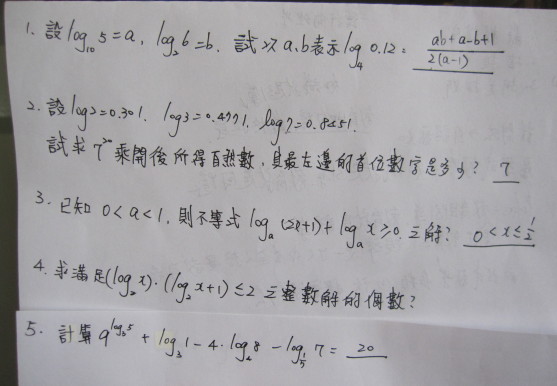 1. 設 log₁₀ 5 = a, log₂ 6 = b. 試以 a, b 表示 log₄ 0.12 = (ab+a-b+1)/(2(a-1))
2. 設 log2=0.301, log3=0.4771, log7=0.8451.
試求 7²⁰ 乘開後所得自然數, 其最左邊的首位數字是多少? 7
3. 已知 0<a<1, 則不等式 logₐ(2x+1)+logₐ x≥0 之解? 0<x≤1/2
4. 求滿足(log₂ x)·(log₂ x+1)≤2 之整數解的個數?
5. 計算 9^(log₃ 5) + log₃ 1 - 4·log₄ 8 - log_(1/5) 7 = 20